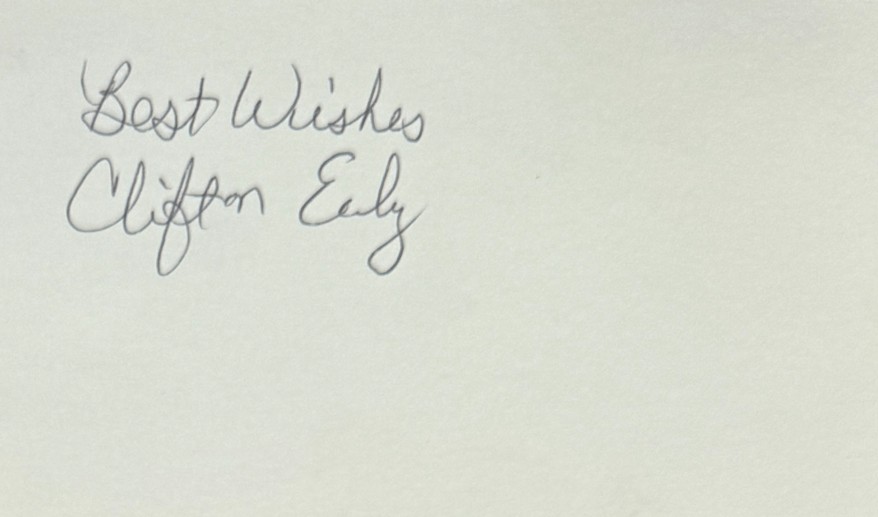 Best Wishes
Clifton Early